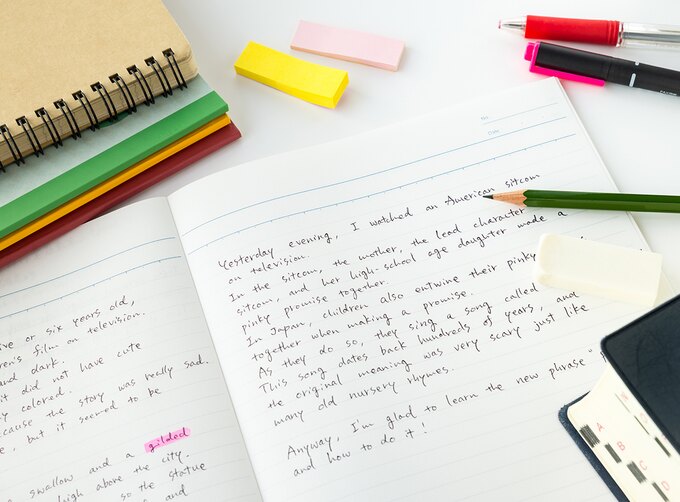 ive or six years old,
en's film on television.
and dark.
it did not have cute
y colored.
cause the story was really sad.
e, but it seemed to be
swallow and a gilded
high above the city.
so the statue
and
No.
Date
Yesterday evening, I watched an American sitcom
on television.
In the sitcom, the mother, the lead character
sitcom, and her high-school age daughter made a
pinky promise together.
In Japan, children also entwine their pinky
together when making a promise.
As they do so, they sing a song called
This song dates back hundreds of years, and
the original meaning was very scary just like
many old nursery rhymes.
Anyway, I'm glad to learn the new phrase "
and how to do it!
A
B
C
D